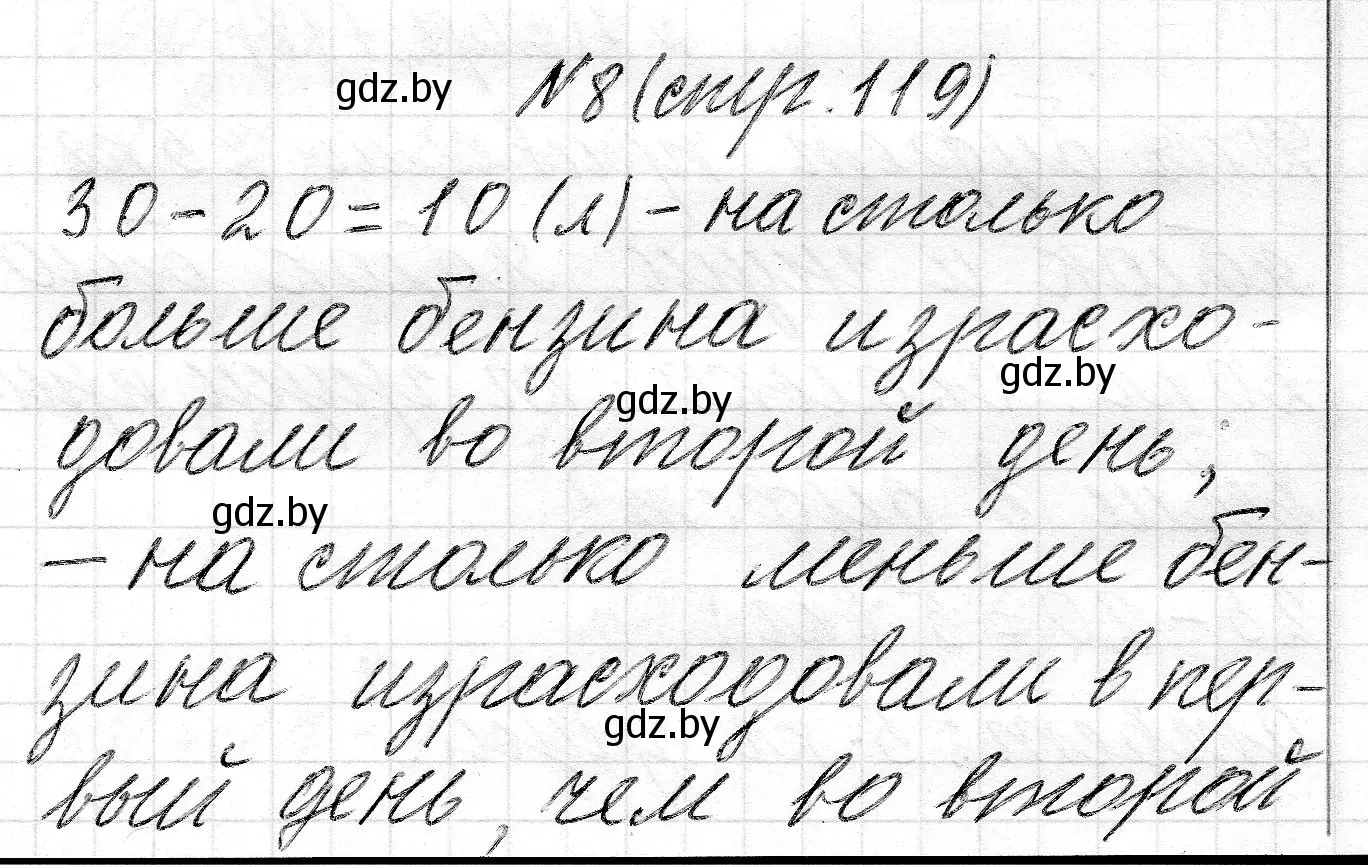 gdz.by №8 (стр. 119)
30 - 20 = 10 (л) - на столько
больше бензина израсхо-
gdz.by
gdz.by
довали во второй день,
gdz.by
- на столько меньше бен-
зина израсходовали в пер-
gdz.by
вый день, чем во второй